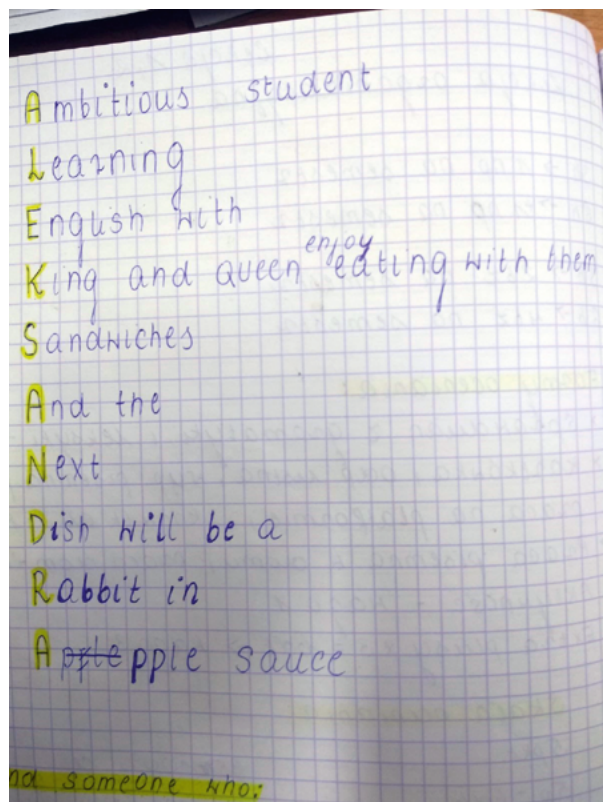 Ambitious student
Learning
English with
King and queen enjoy eating with them
Sandwiches
And the
Next
Dish will be a
Rabbit in
Apple sauce
nd someone who: